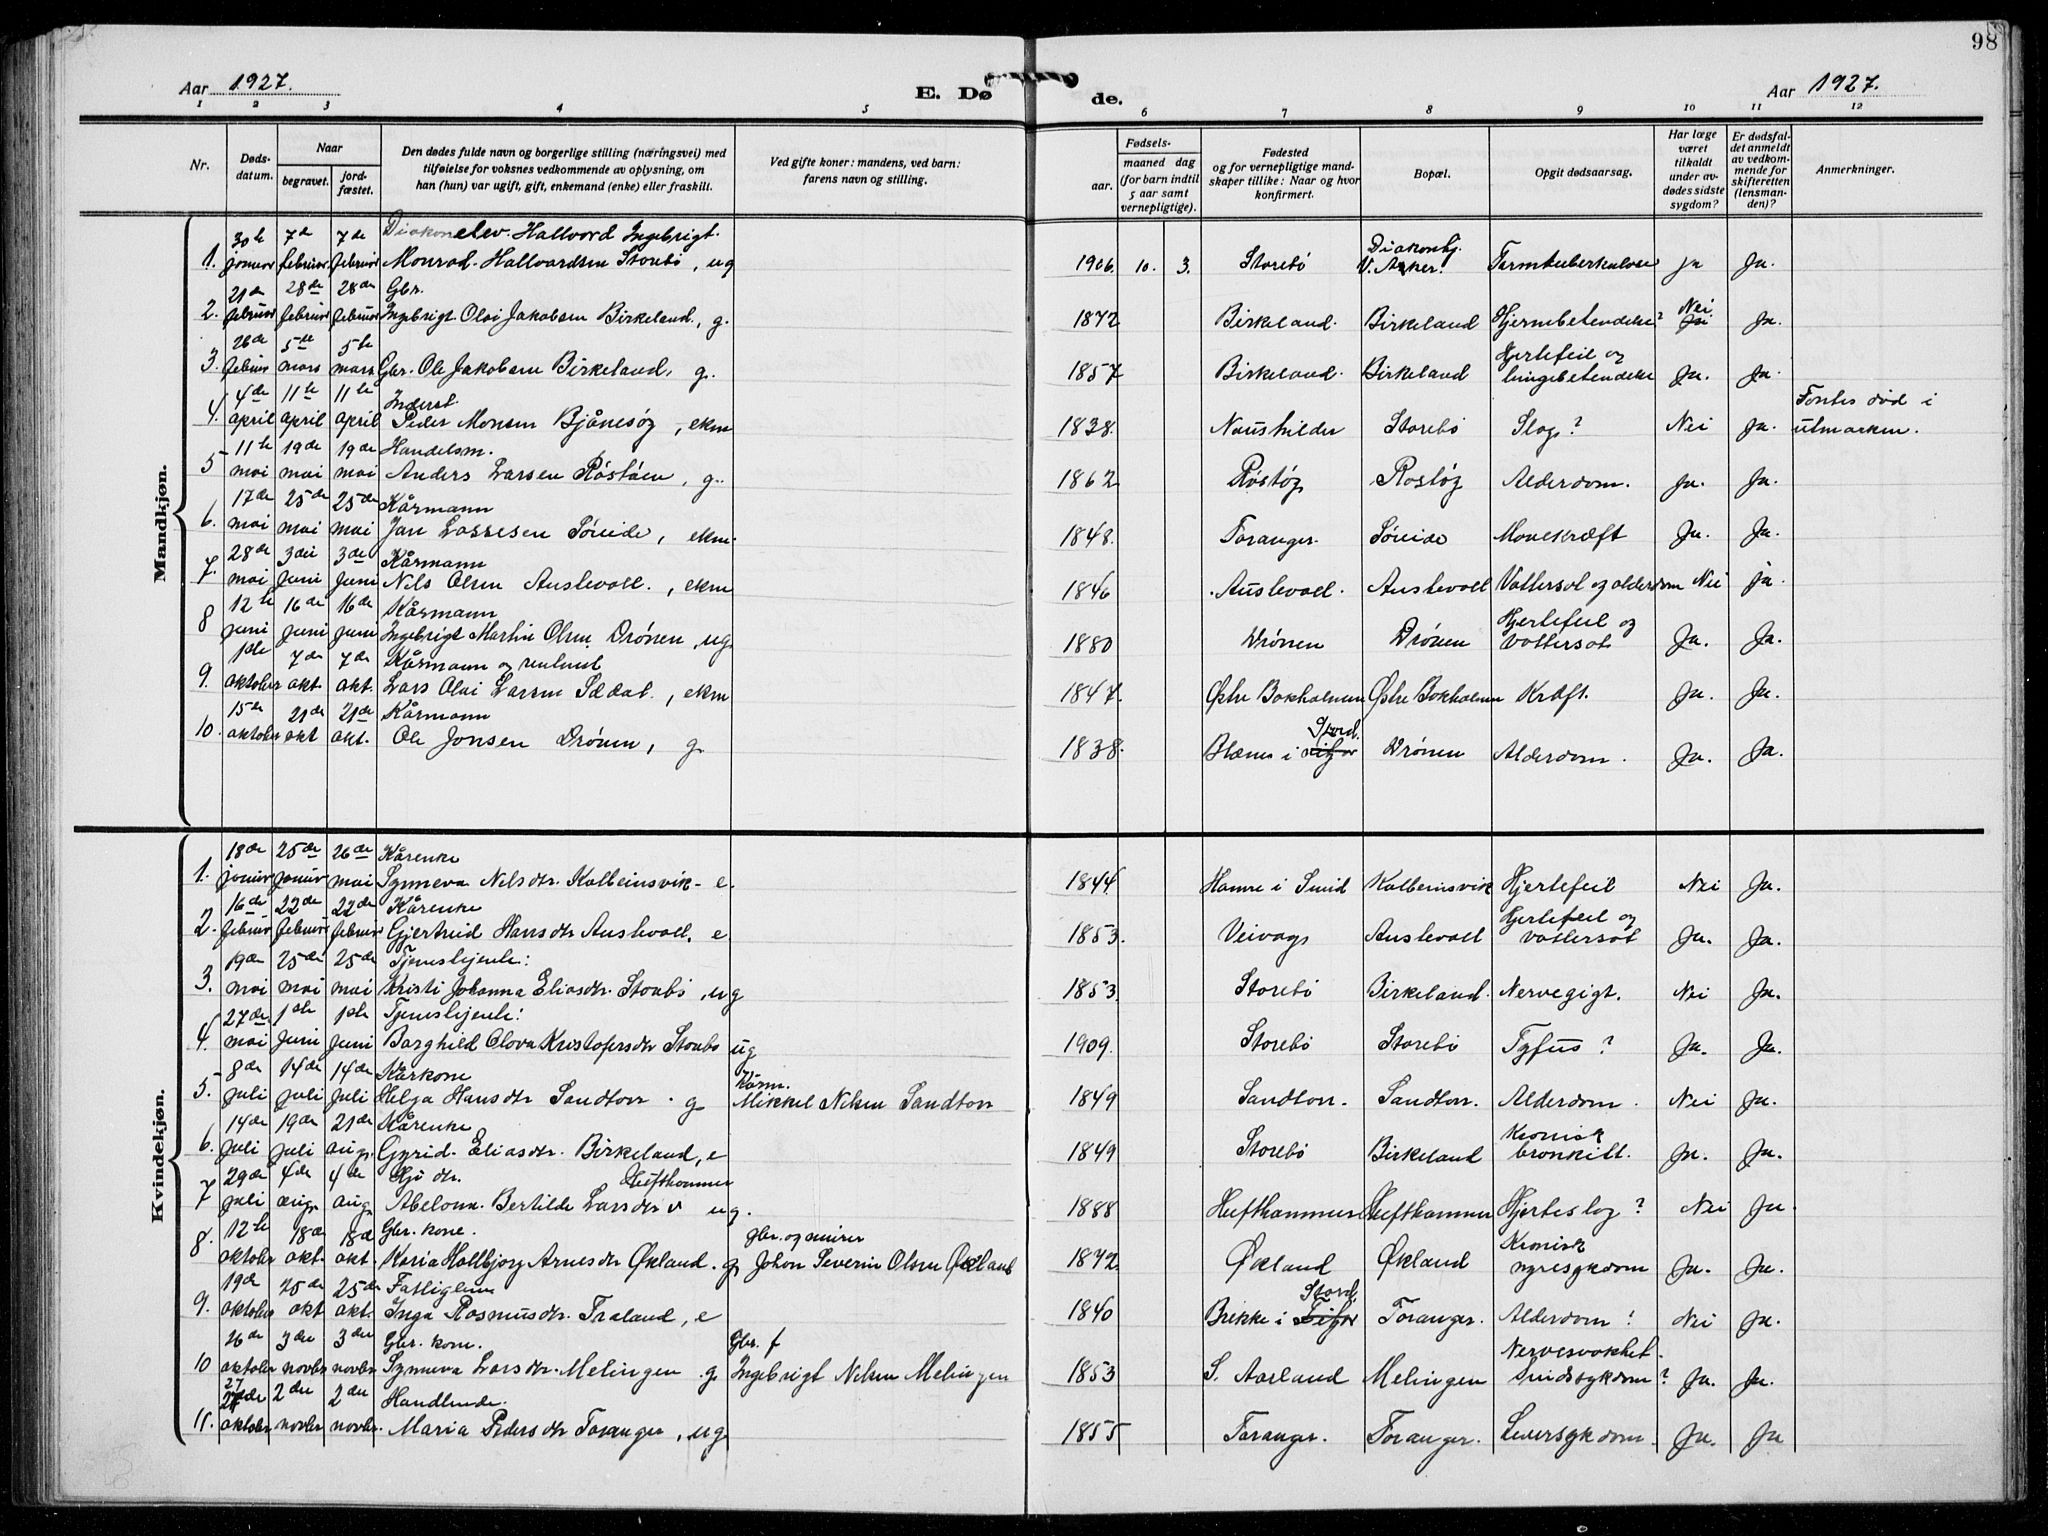 98
Aar 1927. E. Dø de. Aar 1927.
1 2 3 4 5 6 7 8 9 10 11 12
Nr. Døds-datum. Naar begravet. jord-fæstet. Den dødes fulde navn og borgerlige stilling (næringsvei) med tilføielse for voksnes vedkommende av oplysning, om han (hun) var ugift, gift, enkemand (enke) eller fraskilt. Ved gifte koner: mandens, ved barn: farens navn og stilling. Fødsels- aar. maaned dag (for barn indtil 5 aar samt vernepligtige). Fødested og for vernepligtige mand-skaper tillike: Naar og hvor konfirmert. Bopæl. Opgit dødsaarsag. Har læge været tilkaldt under av-dødes sidste sygdom? Er dødsfal-det anmeldt av vedkom-mende for skifteretten (lensman-den)? Anmerkninger.
Mandkjøn.
30te 7de 7de Diakonelev Hallvord Ingebrigt. Diakonhj.
1. januar februar februar Monrad Hallvardsen Storebø, ug 1906. 10. 3. Storebø V. Aker. Tarmtuberkulose ja Ja.
21de 28de 28de Gbr. Nei
2. februar februar februar Ingebrigt Olai Jakobsen Birkeland, g. 1872 Birkeland. Birkeland Hjernebetendelse? Ja Ja.
26de 5te 5te Hjertefeil og
3. februar mars mars Gbr. Ole Jakobsen Birkeland, g. 1857 Birkeland. Birkeland lungebetendelse Ja. Ja.
4de 11te 11te Inderst. Fontes død i
4. april april april Peder Monsen Bjånesøy, ekm 1838. Naustvilder Storebø Slag? Nei Ja. utmarken.
11te 19de 19de Handelsm.
5 mai mai mai Anders Larsen Røstøen, g. 1862 Røstøy Rostøy Alderdom. Ja. Ja.
17de 25de 25de Kårmann
6. mai mai mai Jan Lassesen Søreide, ekm. 1848. Toranger. Søreide Mavekræft Ja. Ja.
28de 3die 3de Kårmann
7. mai juni juni Nils Olsen Austevoll., ekm 1846 Austevoll. Austevoll Vattersot og alderdom Nei ja.
12te 16de 16de Kårmann Hjertefeil og
8 juni juni juni Ingebrigt Martin Olsen Drönen, ug. 1880 Drönen Drönen Vattersot Ja. Ja.
1ste 7de 7de Kårmann og
9. oktober okt. okt. Lars Olai Larsen, ekm 1847. Østre Bokholmen Østre Bokholmen Kræft. Ja. Ja.
15de 21de 21de Kårmann Stord.
10. oktober okt okt. Ole Jonsen Drönen, g. 1838. i Drönen Alderdom. Ja. Ja.
Kvindekjøn.
18de 25de 26de Kårenke
1. januar januar mai Synneva Nilsdtr. Kolbeinsvik - e. 1844. Hamre i Kolbeinsvik Hjertefeil Nei Ja.
16de 22de 22de Kårenke Hjertefeil og
2. februar februar februar Gjertrud Hansdtr Austevoll. e 1853. Veivags Austevoll vattersot Ja. Ja.
19de 25de 25de Tjenestejente:
3. mai mai mai Kristi Johanna Eliasdtr. Storebø, ug 1853 Storebø Birkeland. Nervegigt. Nei Ja.
27de 1ste 1ste Tjenestejente:
4. mai juni juni Borghild Olova Kristofersdtr Storebø ug 1909. Storebø Storebø Tyfus? Ja. Ja.
8de 14de 14de Kårkone Kårm.
5. juli juli juli Helga Hansdtr Sandtorv. g Mikkel Nilsen Sandtorv 1849 Sandtorv. Sandtorv. Alderdom. Nei Ja.
14de 19de 21de Kårenke Kronisk
6. juli juli aug. Gyrid Eliasdtr. Birkeland, e 1849 Storebø Birkeland bronkitt. Ja. Ja.
29de 4de 4de Gbr dtr. Hufthammer
7 juli aug. aug. Abelona Bertilde Larsdtr ug. 1888 Hufthammer Hufthammer Hjerteslag? Nei Ja.
12te 18de 18de Gbr. kone. gbr. og murer Kronisk
8. oktober okt. okt. Karia Hallbjørg Arnesdtr Økland. g. Johan Severin Olsen Økland 1872 Økland Økland nyresykdom Ja. Ja.
19de 25de 25de Fattiglem Stord.
9. oktober okt okt. Inga Rasmusdtr. Traland, e 1840 Brekke i Toranger. Alderdom? Nei Ja.
26de 3de 3die Gbr. kone. Gbr. f Nervesvakhet
10 oktober novbr novbr Synneva Larsdtr. Melingen. g. Ingebrigt Nilsen Melingen 1853 S. Aarland Melingen sindssykdom? Ja. Ja.
27 de 2den 2den Handlende.
11. oktober novbr novbr. Maria Pedersdtr Toranger, ug 1855 Toranger. Toranger. Leversykdom. Ja. Ja